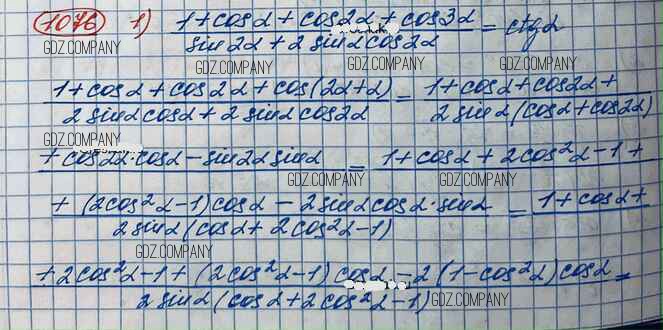 1076 1) 1+cosα+cos2α+cos3α / sin2α+2sinαcos2α = ctgα
GDZ.COMPANY GDZ.COMPANY GDZ.COMPANY
1+cosα+cos2α+cos(2α+α) / 2sinαcosα+2sinαcos2α = 1+cosα+cos2α+ / 2sinα(cosα+cos2α)
GDZ.COMPANY GDZ.COMPANY GDZ.COMPANY
GDZ.COMPANY
+cos2α·cosα-sin2αsinα = 1+cosα+2cos²α-1+
GDZ.COMPANY GDZ.COMPANY GDZ.COMPANY
+(2cos²α-1)cosα-2sinαcosα·sinα / 2sinα(cosα+2cos²α-1) = 1+cosα+
GDZ.COMPANY GDZ.COMPANY
GDZ.COMPANY
+2cos²α-1+(2cos²α-1)cosα-2(1-cos²α)cosα / 2sinα(cosα+2cos²α-1) =
GDZ.COMPANY